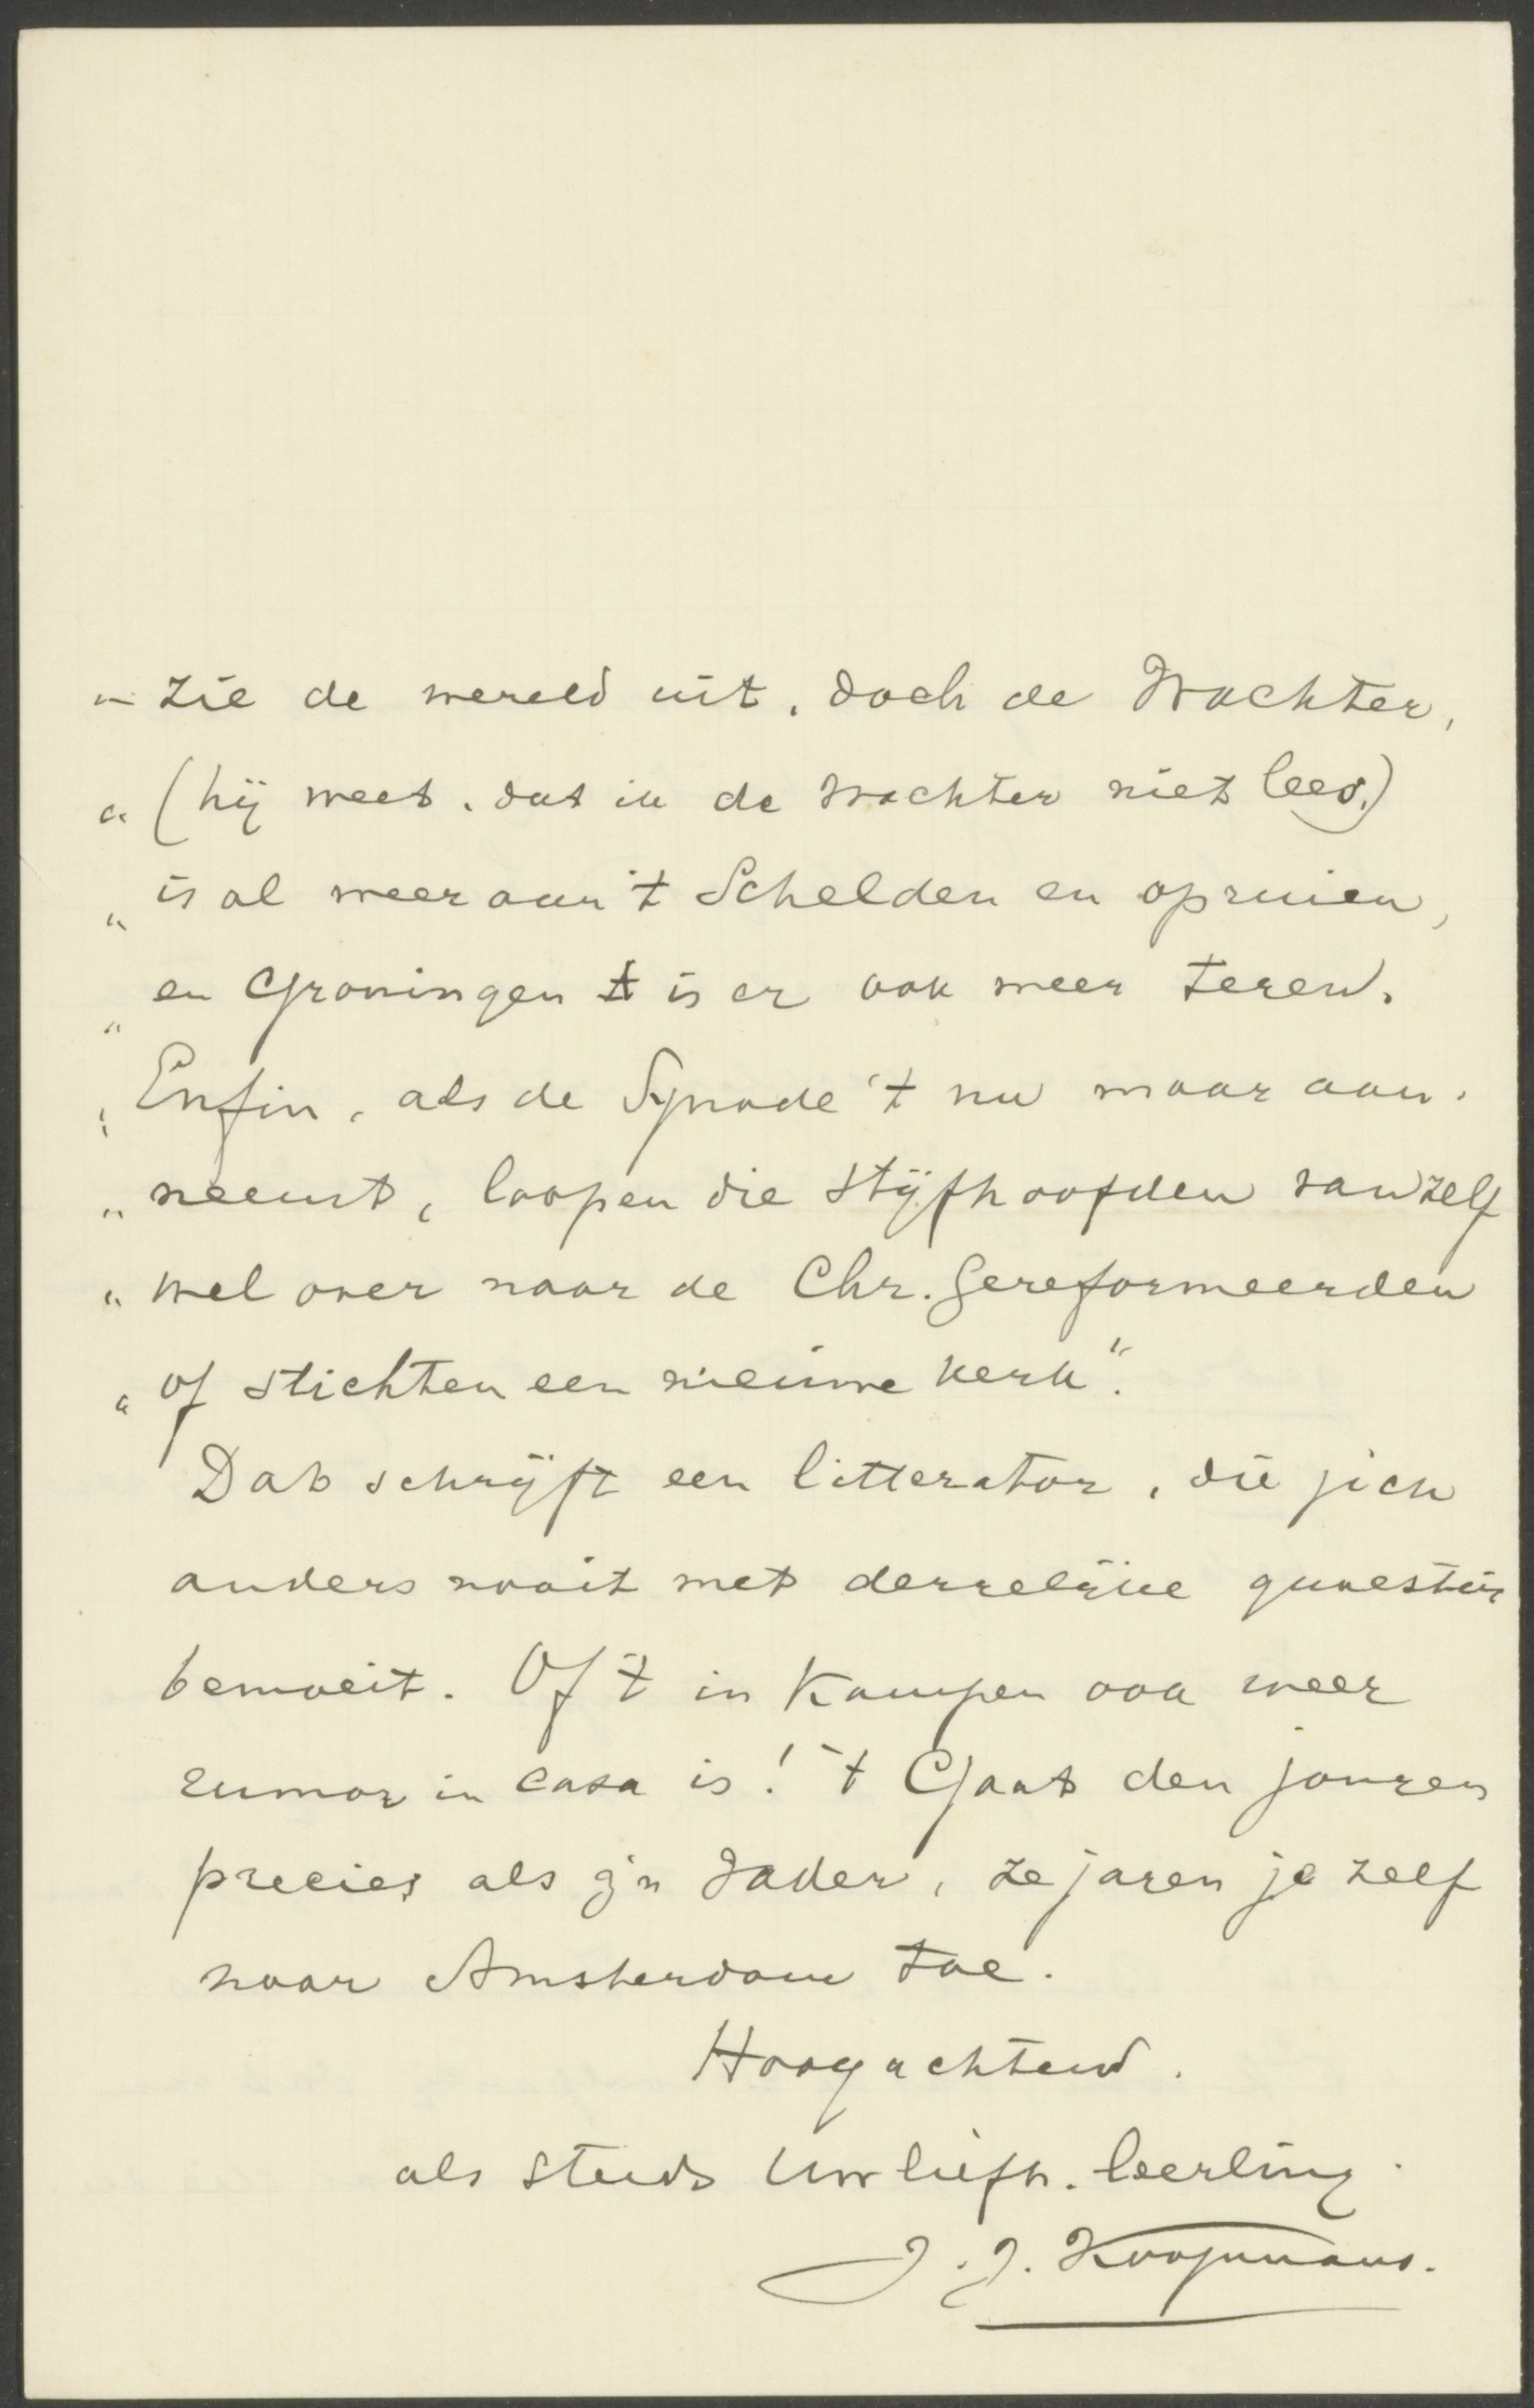 „ zie de wereld uit, doch de Wachter,
„ (hij weet, dat ik de Wachter niet lees.)
„ is al weer aan 't Schelden en opruien,
„ en Groningen is er ook weer tegen.
„ Enfin, als de Synode 't nu maar aan-
„ neemt, loopen die stijfhoofden vanzelf
„ wel over naar de Chr. Gereformeerden
„ of stichten een nieuwe kerk".
Dat schrijft een litterator, die zich
anders nooit met dergelijke quaestie
bemoeit. Of 't in Kampen ook weer
rumor in casa is! 't Gaat den jongen
precies als z'n Vader, ze jagen je zelf
naar Amsterdam toe.
Hoogachtend.
als steeds Uw liefh. leerling.
J. J. Koopmans.